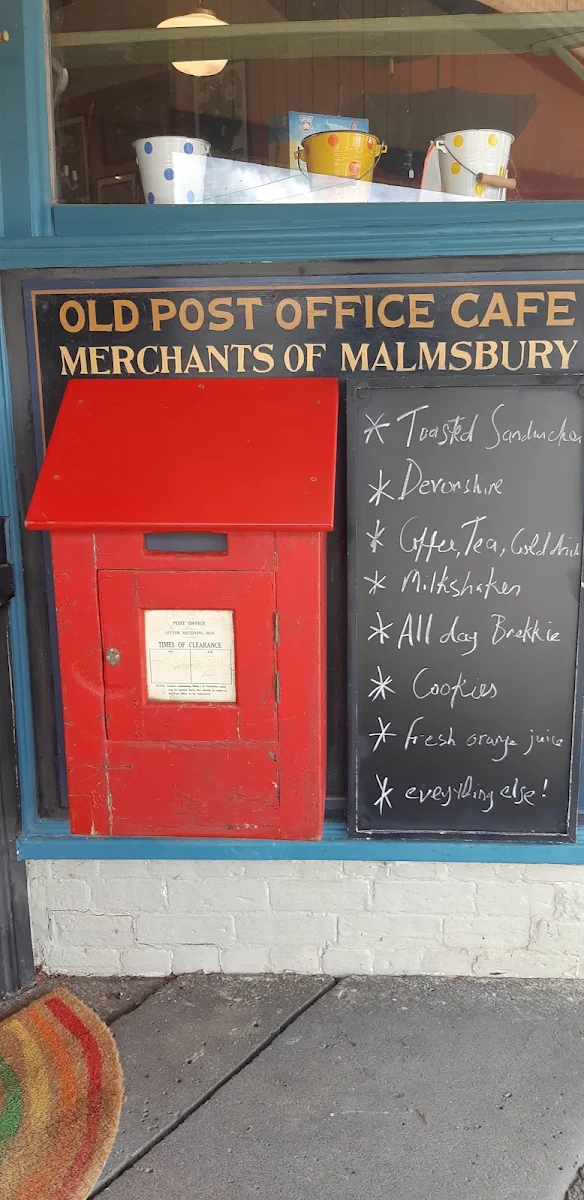 OLD POST OFFICE CAFE
MERCHANTS OF MALMSBURY
POST OFFICE
LETTER RECEIVING BOX
TIMES OF CLEARANCE
* Toasted Sandwiches
* Devonshire
* Coffee, Tea, Cold drink
* Milkshakes
* All day Brekkie
* Cookies
* fresh orange juice
* everything else!